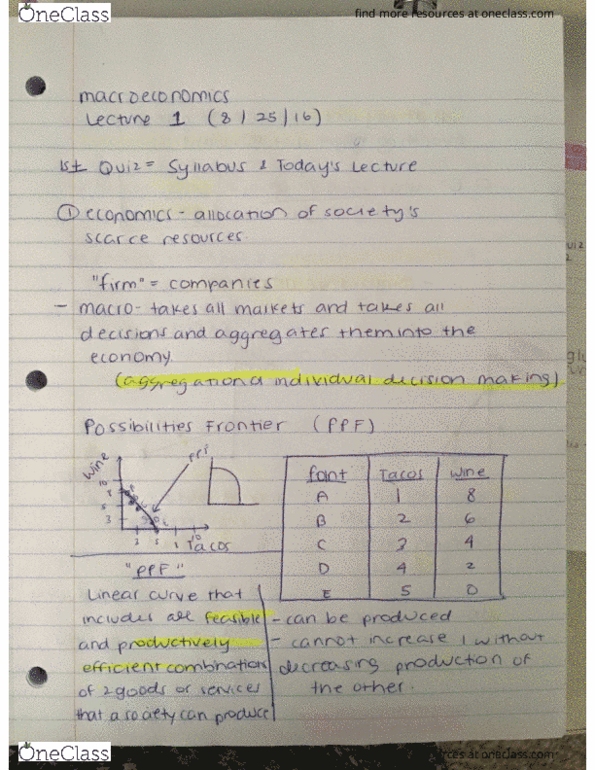 OneClass
find more resources at oneclass.com
macroeconomics
Lecture 1 (8/25/16)
1st Quiz = Syllabus & Today's Lecture
① economics - allocation of society's
scarce resources.
"firm" = companies
- macro - takes all markets and takes all
decisions and aggregates them into the
economy.
(aggregation of individual decision making)
Possibilities Frontier (PPF)
Wine
Tacos
Point Tacos Wine
A 1 8
B 2 6
C 3 4
D 4 2
E 5 0
"PPF"
Linear curve that
includes all feasible
and productively
efficient combination
of 2 goods or services
that a society can produce
- can be produced
- cannot increase 1 without
decreasing production of
the other.
OneClass